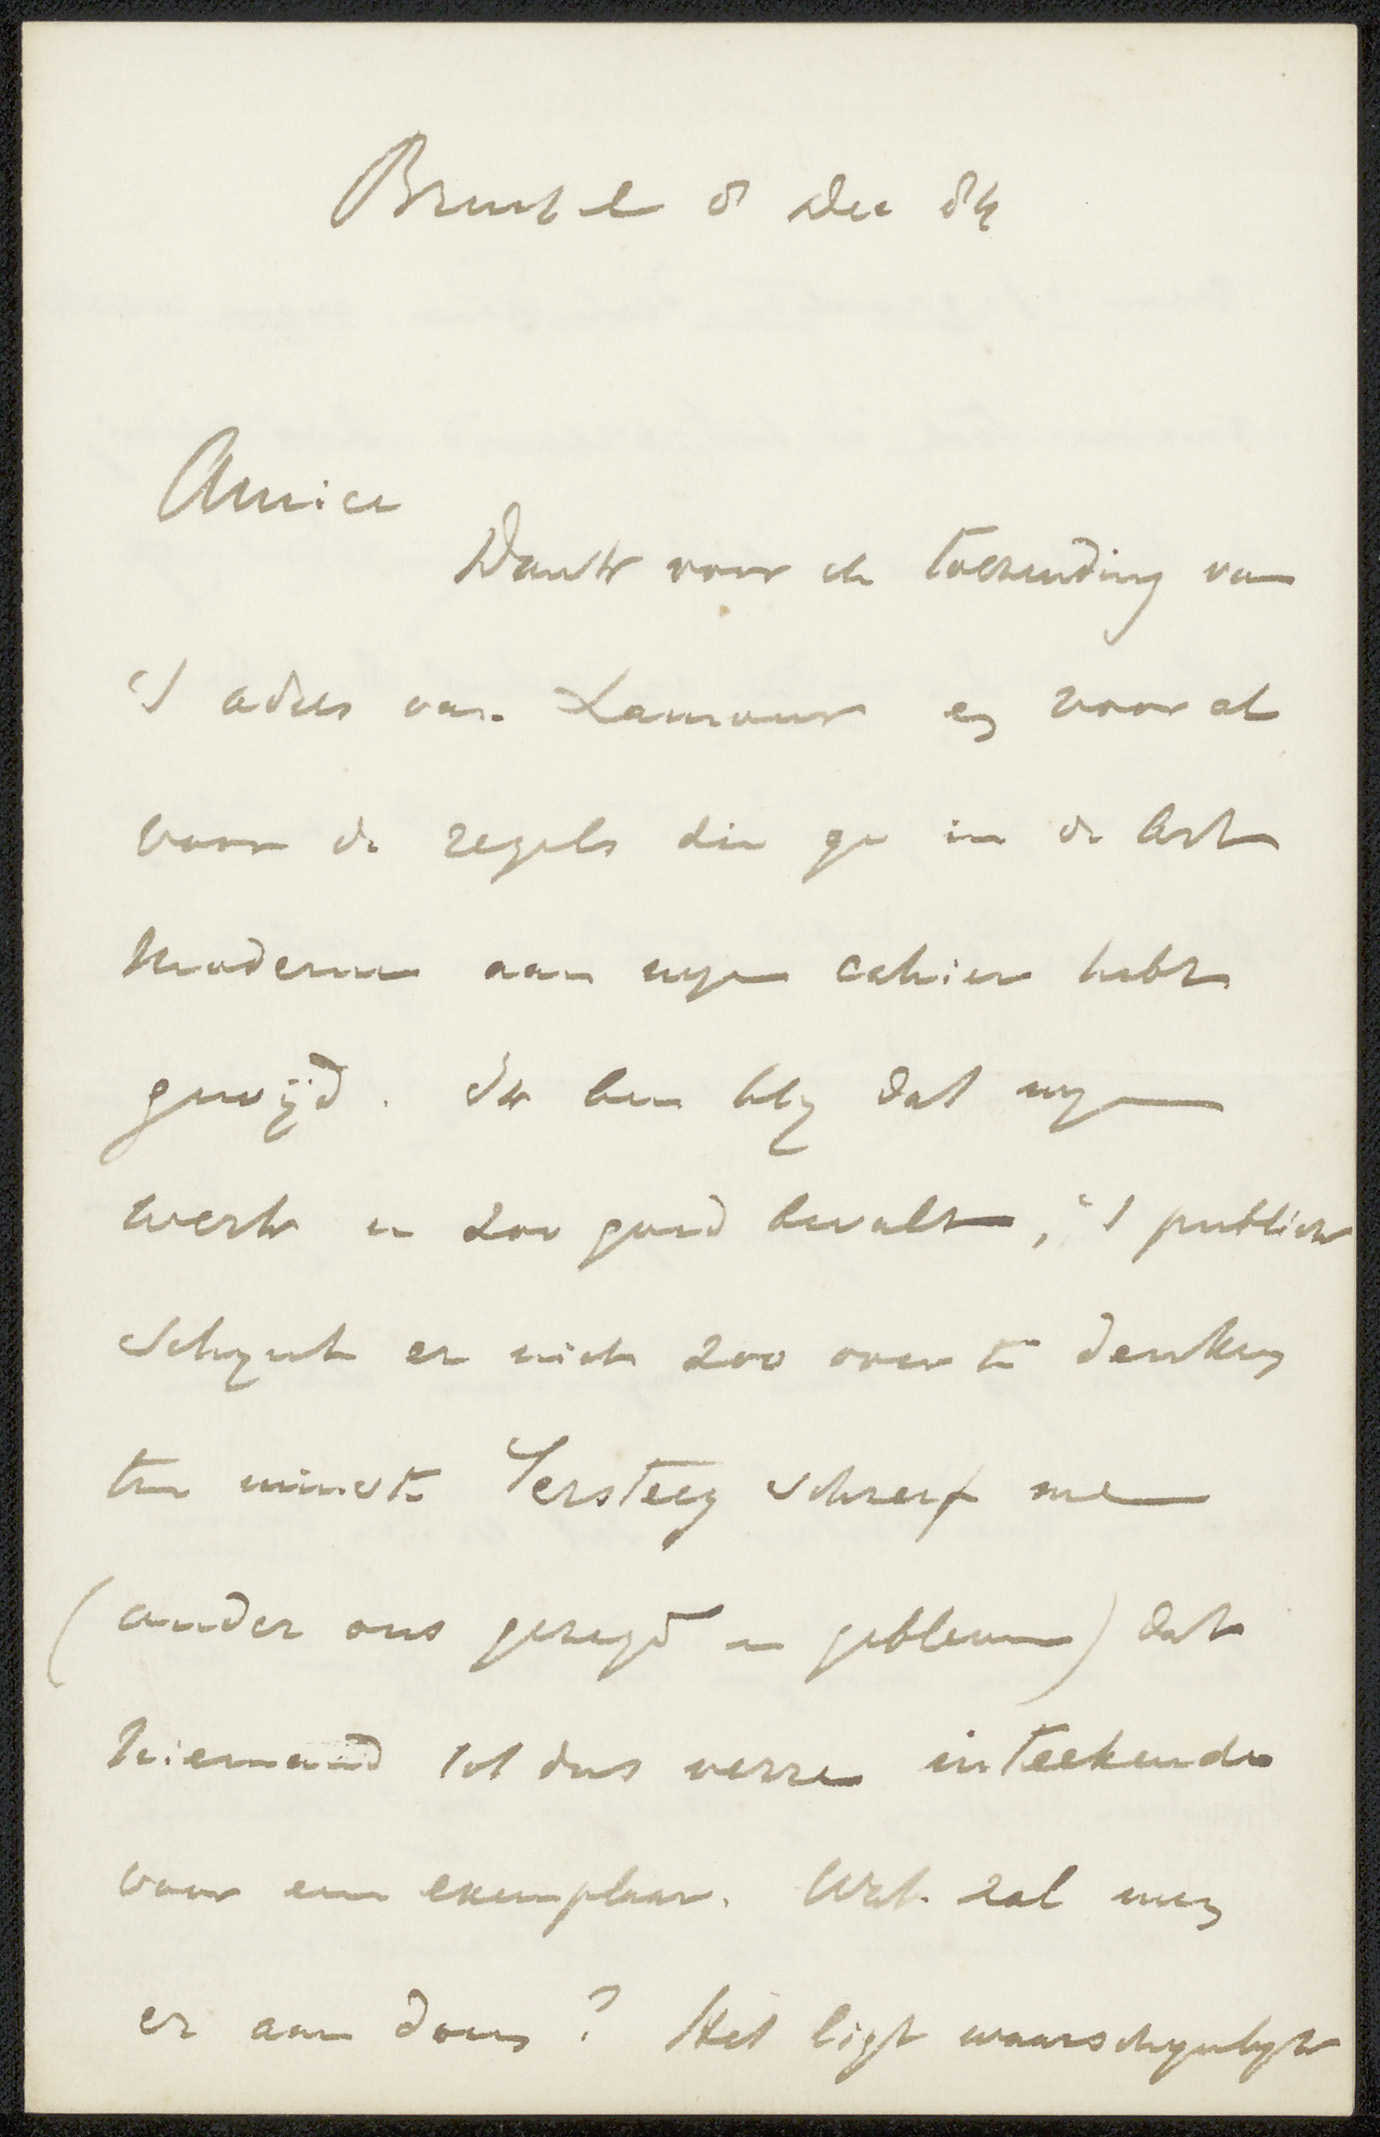 Brussel 8 Dec 84
Amice
Dank voor de toezending van
't adres van Lamour en vooral
voor de regels die ge in de Art
Moderne aan myn cahier hebt
gewijd. Ik ben bly dat myn
werk u zoo goed bevalt, 't publiek
schynt er niet zoo over te denken
ten minste Tersteeg schreef me
(onder ons gezegd en gebleven) dat
niemand tot dus verre inteekende
voor een exemplaar. Wat zal men
er aan doen? Het ligt waarschynlyk